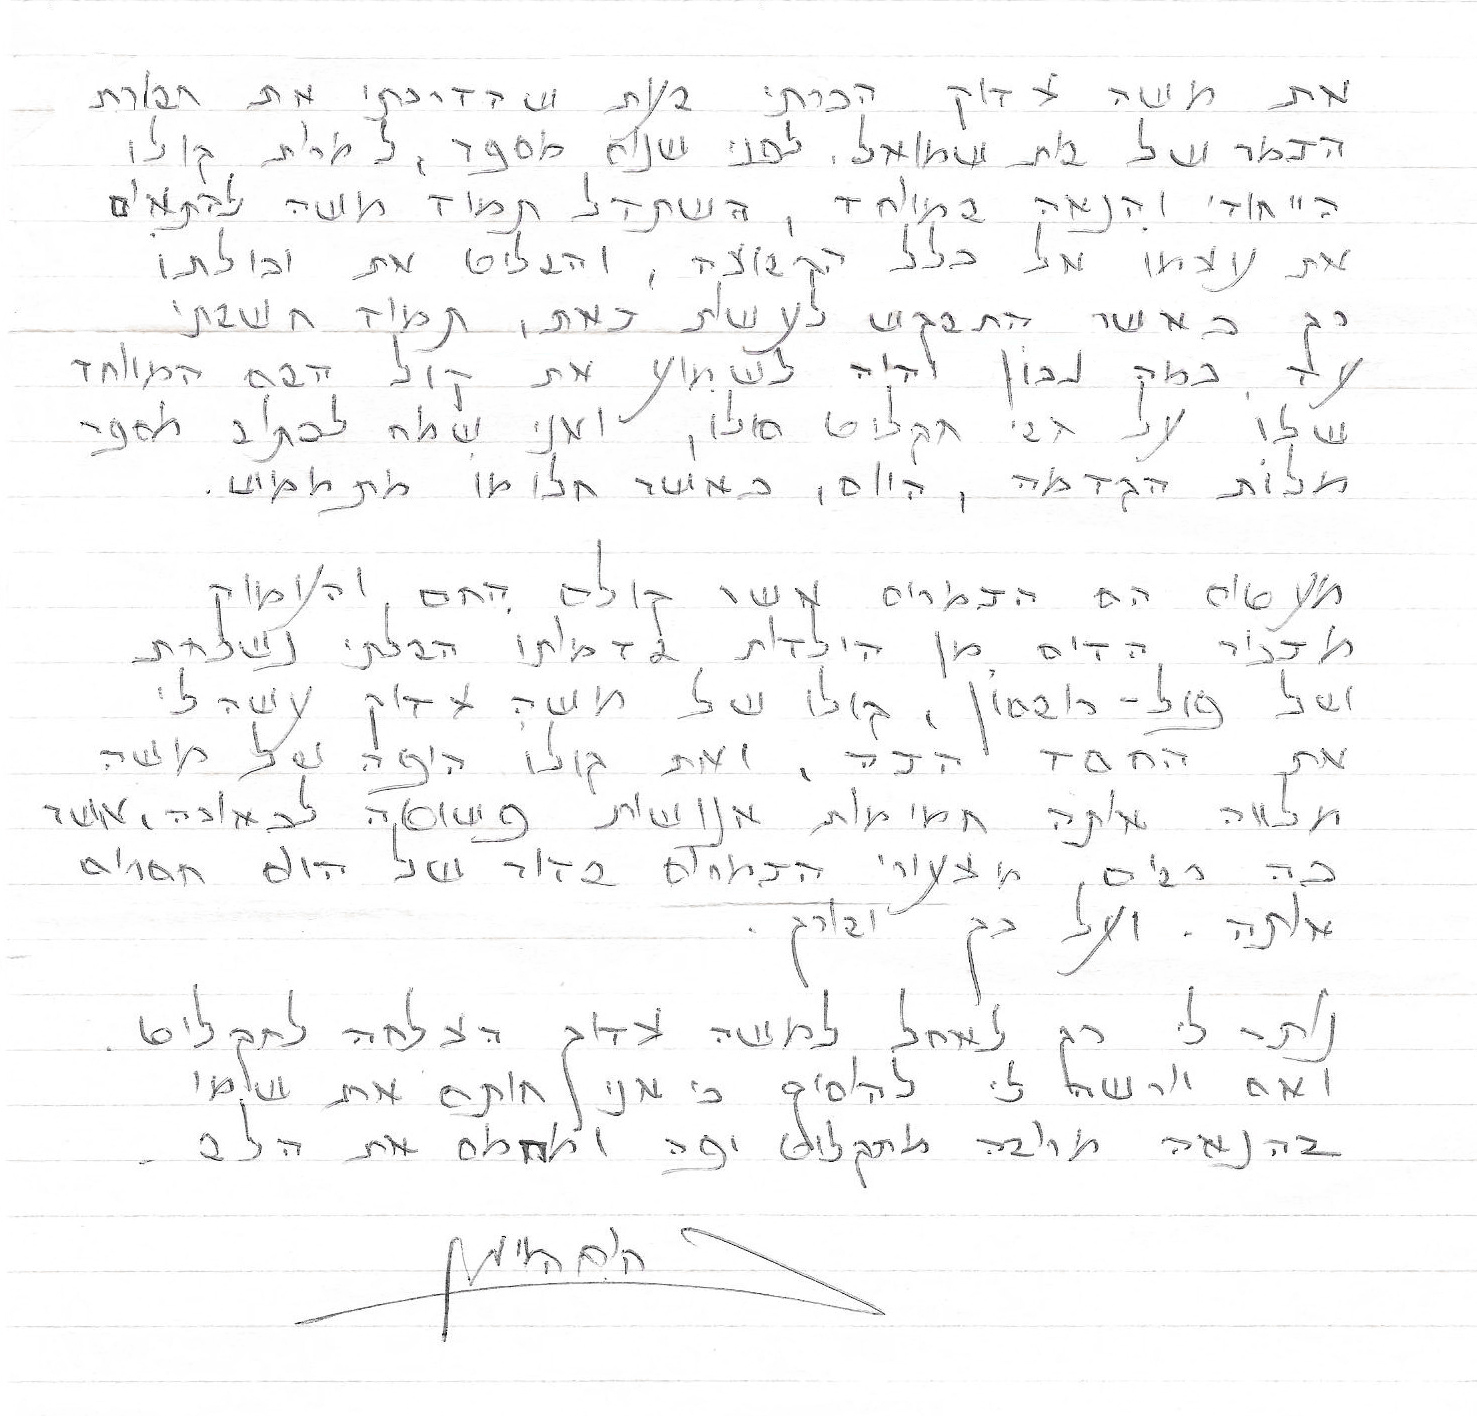 את משה צדוק הכרתי בעת שהדרכתי את חבורת
הזמר של בת שמואל. לפני שנים מספר, למרות קולו
הייחודי והנאה במיוחד, השתדל תמיד משה להתאים
את עצמו אל כלל הקבוצה, והבליט את יכולתו
רק כאשר התבקש לעשות זאת, תמיד חשבתי
עד כמה נכון יהיה לשמוע את קול הבס המיוחד
שלו על גבי תקליט סולו, ואני שמח לכתוב מספר
מלות הקדמה, היום, כאשר חלומו מתממש.
מעטים הם הזמרים אשר קולם החם והעמוק
מזכיר הדים מן הילדות בדמותו הבלתי נשכחת
של פול-רובסון, קולו של משה צדוק עשה לי
את החסד הזה, ואת קולו היפה של משה
מלווה אותה חמימות אנושית פשוטה לכאורה, אשר
כה רבים, מצעירי הזמרים בדור של היום חסרים
אותה. ועל כך יבורך.
נותר לי רק לאחל למשה צדוק הצלחה לתקליט.
ואם יורשה לי להוסיף כי אני חותם את שמי
בהנאה מרובה מתקליט יפה ומחמם את הלב.